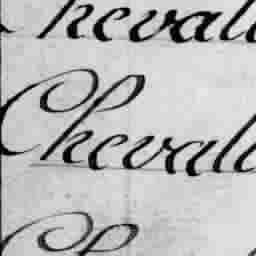 Cheval
Cheval
Ch